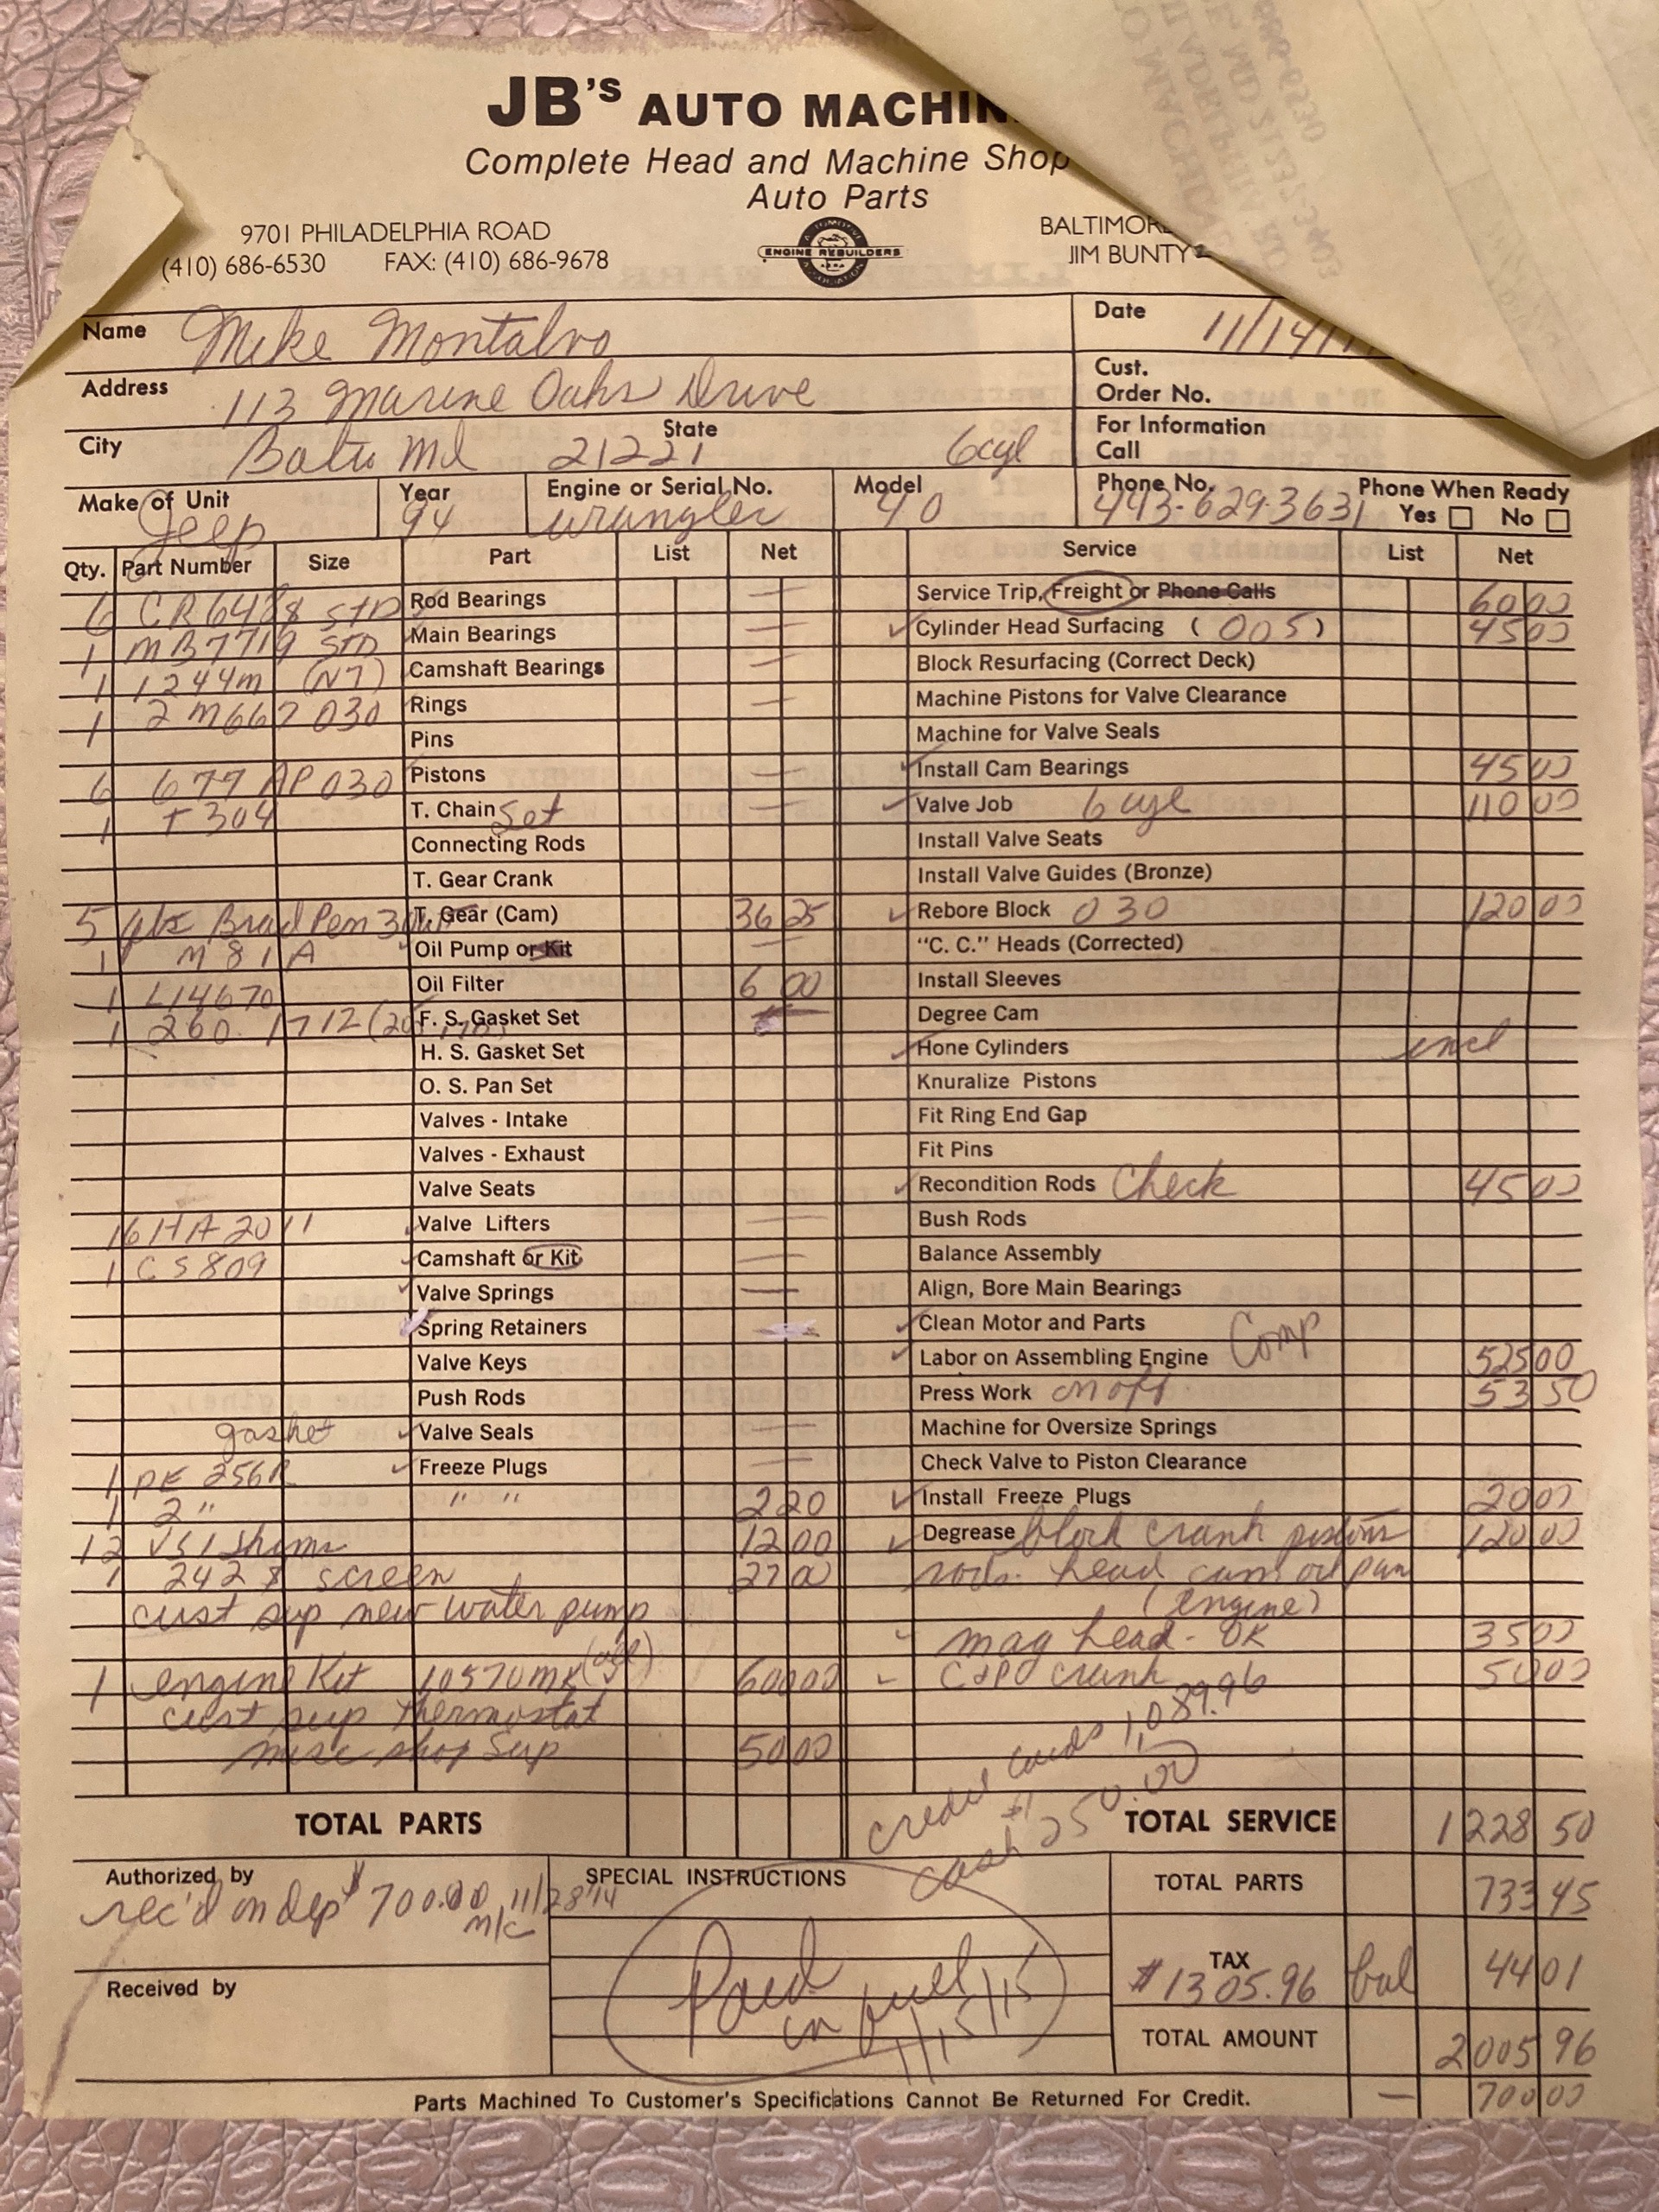 JB's AUTO MACHIN
Complete Head and Machine Shop
Auto Parts
9701 PHILADELPHIA ROAD
(410) 686-6530 FAX: (410) 686-9678
ENGINE REBUILDERS
BALTIMOR
JIM BUNTY
Name Mike Montalvo
Date 11/14/
Address 113 Marine Oaks Drive
Cust. Order No.
City Balto Md State 21221 6cyl
For Information Call
Make of Unit Jeep
Year 94
Engine or Serial No. Wrangler
Model 40
Phone No. 443-629-3631
Phone When Ready Yes No
Qty. Part Number Size Part List Net Service List Net
6 CR6488 STD Rod Bearings — Service Trip, Freight or Phone Calls 60 00
1 MB7719 STD Main Bearings — Cylinder Head Surfacing (005) 45 00
1 1244m (N7) Camshaft Bearings — Block Resurfacing (Correct Deck)
1 2M667 030 Rings — Machine Pistons for Valve Clearance
Pins Machine for Valve Seals
6 677 AP 030 Pistons — Install Cam Bearings 45 00
1 T304 T. Chain Set — Valve Job 6 cyl 110 00
Connecting Rods Install Valve Seats
T. Gear Crank Install Valve Guides (Bronze)
5 qts Brad Pen 30w T. Gear (Cam) 36 25 Rebore Block 030 120 00
1 M81A Oil Pump or Kit — "C. C." Heads (Corrected)
1 L14670 Oil Filter 6 00 Install Sleeves
1 260 1712 F. S. Gasket Set Degree Cam
H. S. Gasket Set Hone Cylinders incl
O. S. Pan Set Knuralize Pistons
Valves - Intake Fit Ring End Gap
Valves - Exhaust Fit Pins
Valve Seats Recondition Rods Check 45 00
16 HA 2011 Valve Lifters — Bush Rods
1 CS809 Camshaft or Kit — Balance Assembly
Valve Springs — Align, Bore Main Bearings
Spring Retainers Clean Motor and Parts
Valve Keys Labor on Assembling Engine Comp 525 00
Push Rods Press Work on off 53 50
gasket Valve Seals — Machine for Oversize Springs
1 PE 256R Freeze Plugs — Check Valve to Piston Clearance
1 2" " " 2 20 Install Freeze Plugs 20 00
12 VS1 Shims 12 00 Degrease block crank pistons 120 00
1 242 8 screen 27 00 rods head cam oil pan
cust sup new water pump (engine)
mag head - OK 35 00
1 engine Kit 10570MK 600 00 C&PO crank 50 00
cust sup thermostat
misc shop Sup 50 00
credit cards 1,089.96
cash 250.00
TOTAL PARTS
TOTAL SERVICE 1228 50
Authorized by
rec'd on dep $700.00 11/28/14
m/c
SPECIAL INSTRUCTIONS
TOTAL PARTS 733 45
TAX 44 01
$1305.96 bal
Received by
Paid in full 1/15/15
TOTAL AMOUNT 2005 96
Parts Machined To Customer's Specifications Cannot Be Returned For Credit.
— 700 00